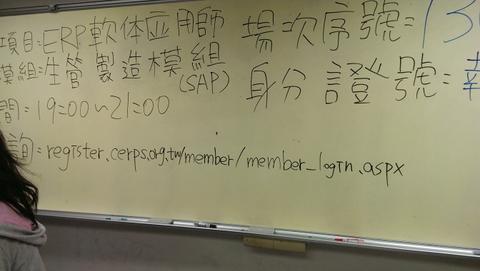 項目=ERP軟体应用師
模組=生管製造模組
(SAP)
間=19=00~21=00
詢=register.cerps.org.tw/member/member_login.aspx
場次序號=13
身分 證號=